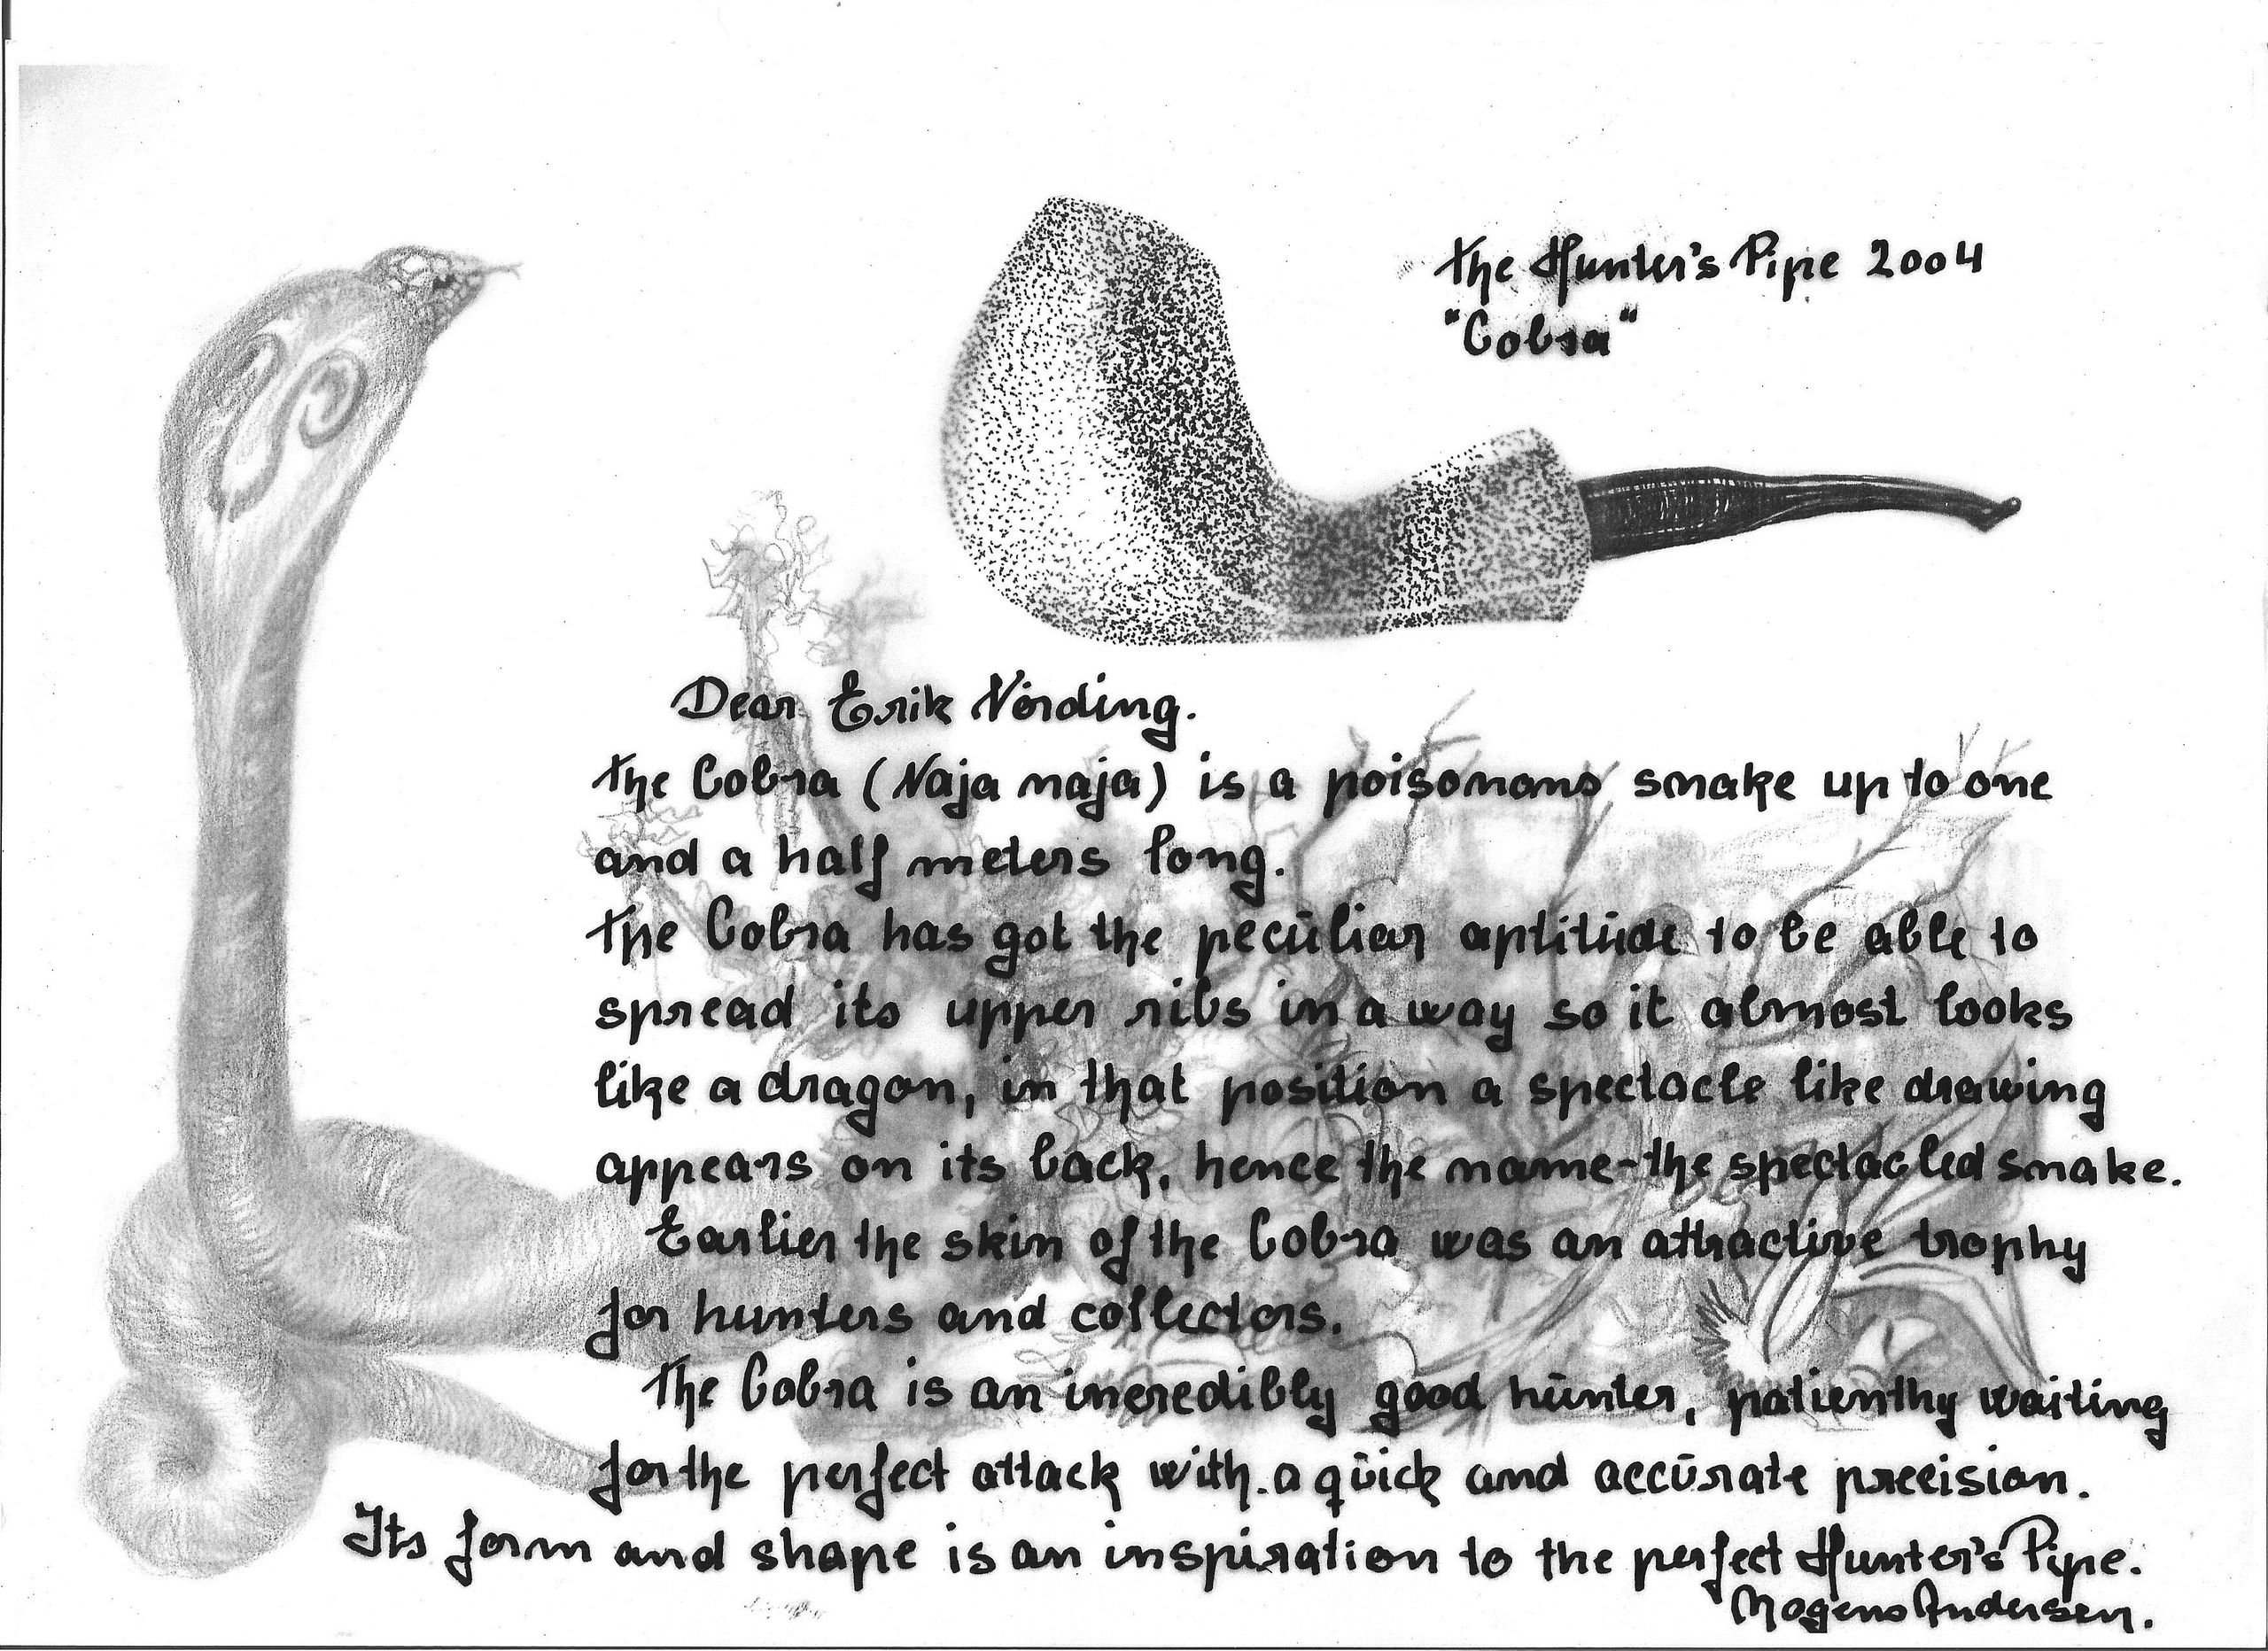 The Hunter's Pipe 2004
"Cobra"
Dear Erik Nørding.
The Cobra (Naja naja) is a poisonous snake up to one
and a half meters long.
The Cobra has got the peculiar aptitude to be able to
spread its upper ribs in a way so it almost looks
like a dragon, in that position a spectacle like drawing
appears on its back, hence the name-the spectacled snake.
Earlier the skin of the Cobra was an attractive trophy
for hunters and collectors.
The Cobra is an incredibly good hunter, patienthy waiting
for the perfect attack with a quick and accurate precision.
Its form and shape is an inspiration to the perfect Hunter's Pipe.
Mogens Andersen.